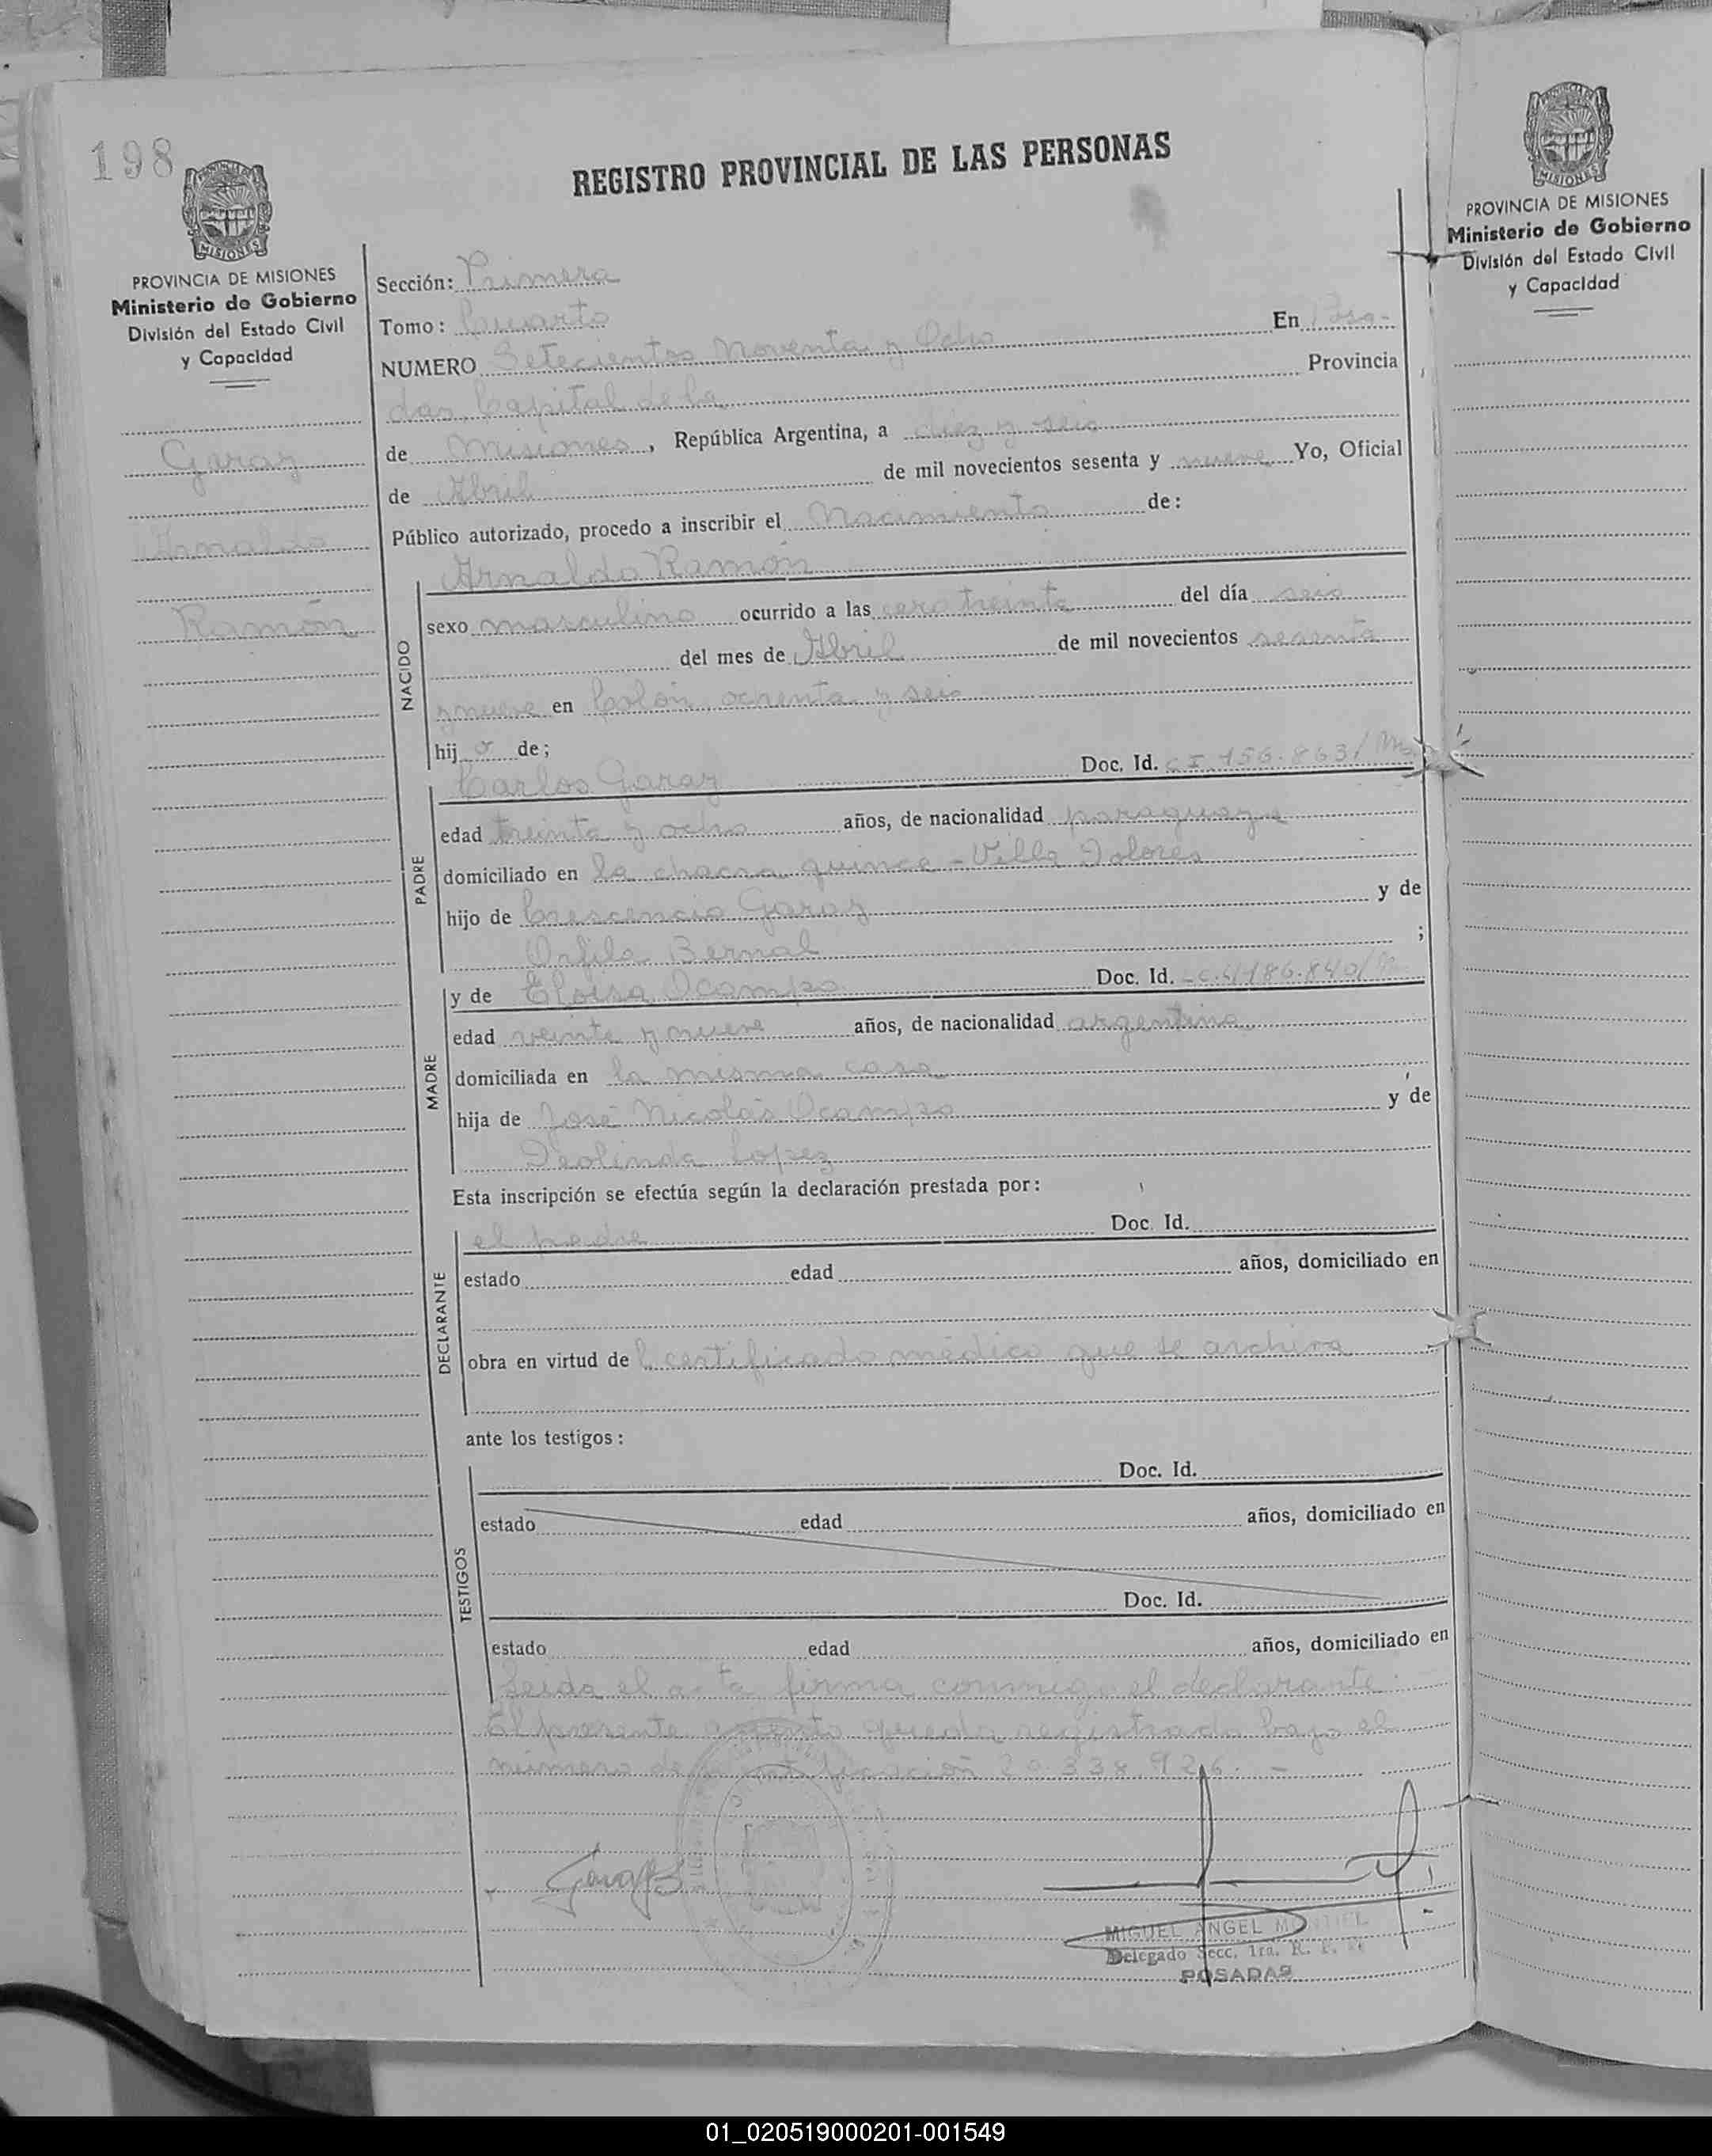 198
REGISTRO PROVINCIAL DE LAS PERSONAS
MISIONES
PROVINCIA DE MISIONES
Ministerio de Gobierno
División del Estado Civil
y Capacidad
Garay
Arnaldo
Ramón
Sección: Primera
Tomo: Cuarto
NUMERO Setecientos Noventa y Ocho En Posa-
das, Capital de la Provincia
de Misiones, República Argentina, a diez y seis
de Abril de mil novecientos sesenta y nueve Yo, Oficial
Público autorizado, procedo a inscribir el Nacimiento de:
Arnaldo Ramón
NACIDO
sexo masculino ocurrido a las cero treinta del día seis
del mes de Abril de mil novecientos sesenta
y nueve en Colón, ochenta y seis
hij o de;
Carlos Garay Doc. Id. C I. 156.863/M
PADRE
edad treinta y ocho años, de nacionalidad paraguaya
domiciliado en la chacra quince - Villa Dolores
hijo de Crescencio Garay y de
Orfila Bernal ;
y de Eloisa Ocampo Doc. Id.
MADRE
edad veinte y nueve años, de nacionalidad argentina
domiciliada en la misma casa
hija de José Nicolás Ocampo y de
Deolinda Lopez
Esta inscripción se efectúa según la declaración prestada por:
el padre Doc. Id.
DECLARANTE
estado edad años, domiciliado en
obra en virtud de l certificado médico que se archiva
ante los testigos:
Doc. Id.
TESTIGOS
estado edad años, domiciliado en
Doc. Id.
estado edad años, domiciliado en
Leida el acta, firma conmigo el declarante
El presente asiento queda registrado bajo el
número de identificación 20.338.926. -
MIGUEL ANGEL MONTIEL
Delegado Secc. 1ra. R. P. P.
POSADAS
MISIONES
PROVINCIA DE MISIONES
Ministerio de Gobierno
División del Estado Civil
y Capacidad
01_020519000201-001549